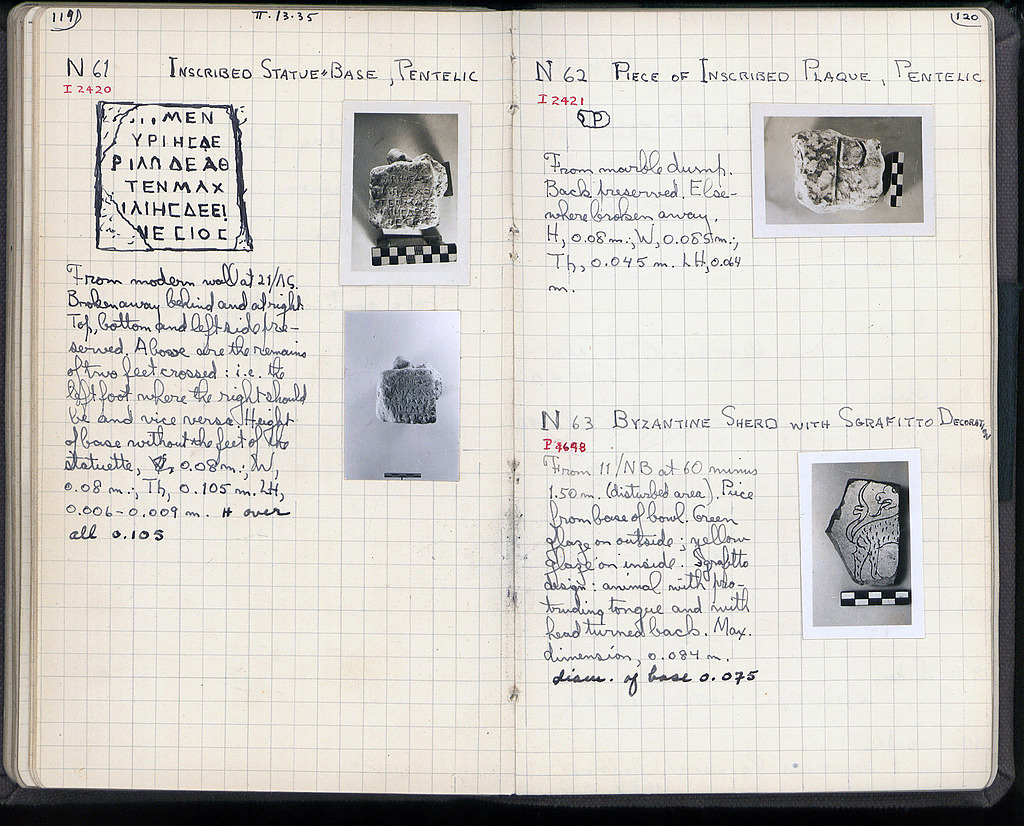 119
II.13.35
N 61 INSCRIBED STATUE-BASE, PENTELIC
I 2420
...MEN
ΥΡΙΗΣΔΕ
ΡΙΛΩΔΕΑΘ
ΤΕΝΜΑΧ
ΙΛΙΗΣΔΕΕΙ
ΝΕΣΙΟΣ
From modern wall at 21/ΛΣ.
Broken away behind and at right.
Top, bottom and left side pre-
served. Above are the remains
of two feet crossed: i.e. the
left foot where the right should
be and vice versa. Height
of base without the feet of the
statuette, 0.08 m.; W,
0.08 m.; Th, 0.105 m. LH,
0.006-0.009 m. H over
all 0.105
120
N 62 PIECE OF INSCRIBED PLAQUE, PENTELIC
I 2421
P
From marble dump.
Back preserved. Else-
where broken away.
H, 0.08 m.; W, 0.085 m.;
Th, 0.045 m. LH, 0.064
m.
N 63 BYZANTINE SHERD WITH SGRAFITTO DECORATION
P 4648
From 11/NB at 60 minus
1.50 m. (disturbed area). Piece
from base of bowl. Green
glaze on outside; yellow
glaze on inside. Sgrafitto
design: animal with pro-
truding tongue and with
head turned back. Max.
dimension, 0.084 m.
diam. of base 0.075